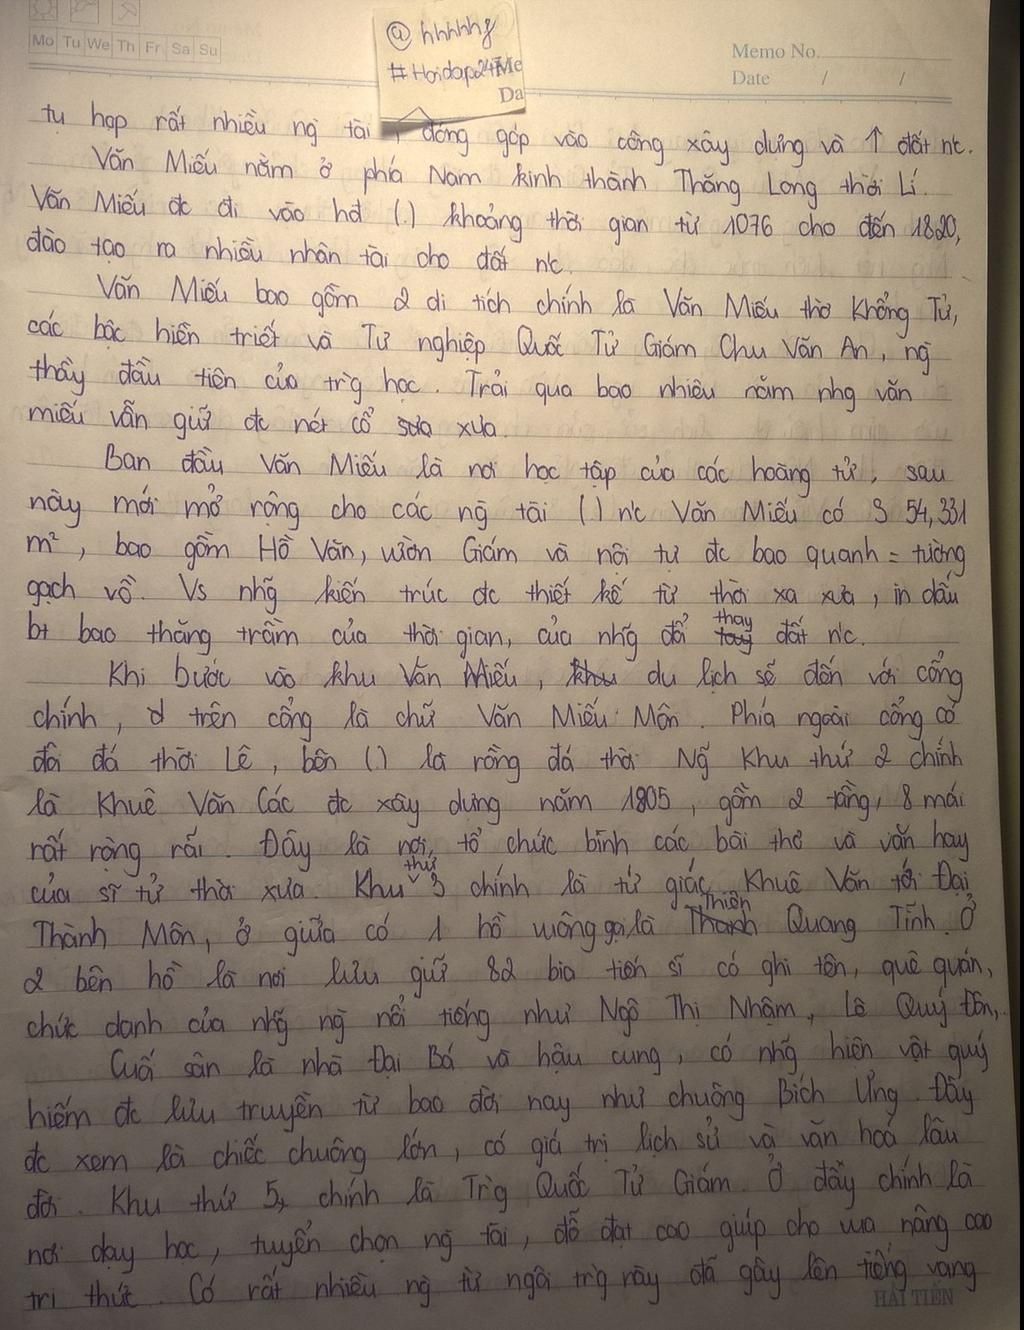 Mo Tu We Th Fr Sa Su
@hhhhhg
#Hoidap247
Me
Da
Memo No.
Date / /
tụ họp rất nhiều ng̀ tài, đóng góp vào công xây dựng và ↑ đất n'c.
Văn Miếu nằm ở phía Nam kinh thành Thăng Long thời Lí.
Văn Miếu đc đi vào hđ (.) khoảng thời gian từ 1076 cho đến 1820,
đào tạo ra nhiều nhân tài cho đất n'c.
Văn Miếu bao gồm 2 di tích chính là Văn Miếu thờ Khổng Tử,
các bậc hiền triết và Tư nghiệp Quốc Tử Giám Chu Văn An, ng̀
thầy đầu tiên của tr'g học. Trải qua bao nhiêu năm nhg văn
miếu vẫn giữ đc nét cổ xưa.
Ban đầu Văn Miếu là nơi học tập của các hoàng tử, sau
này mới mở rộng cho các ng̀ tài ( ) n'c Văn Miếu có S 54,331
m², bao gồm Hồ Văn, vườn Giám và nội tự đc bao quanh = tường
gạch vồ. Vs nh~g kiến trúc đc thiết kế từ thời xa xưa, in dấu
bt bao thăng trầm của thời gian, của nh~g đổi thay đất n'c.
Khi bước vào khu Văn Miếu, du lịch sẽ đến với cổng
chính, ở trên cổng là chữ Văn Miếu Môn. Phía ngoài cổng có
đôi đá thời Lê, bên ( ) là rồng đá thời Ng~ Khu thứ 2 chính
là Khuê Văn Các đc xây dựng năm 1805, gồm 2 tầng, 8 mái
rất rộng rãi. Đây là nơi tổ chức bình các bài thơ và văn hay
của sĩ tử thời xưa. Khu thứ 3 chính là từ giác Khuê Văn tới Đại
Thành Môn, ở giữa có 1 hồ vuông gọi là Thiên Quang Tỉnh. Ở
2 bên hồ là nơi lưu giữ 82 bia tiến sĩ có ghi tên, quê quán,
chức danh của nh~g ng̀ nổi tiếng như Ngô Thị Nhậm, Lê Quý Đôn,..
Cuối sân là nhà Đại Bá và hậu cung, có nh~g hiện vật quý
hiếm đc lưu truyền từ bao đời nay như chuông Bích Ưng. Đây
đc xem là chiếc chuông lớn, có giá trị lịch sử và văn hoá lâu
đời. Khu thứ 5, chính là Tr'g Quốc Tử Giám. Ở đây chính là
nơi dạy học, tuyển chọn ng̀ tài, đỗ đạt cao giúp cho vua nâng cao
tri thức. Có rất nhiều ng̀ từ ngôi tr'g này đã gây lên tiếng vang
HẢI TIẾN